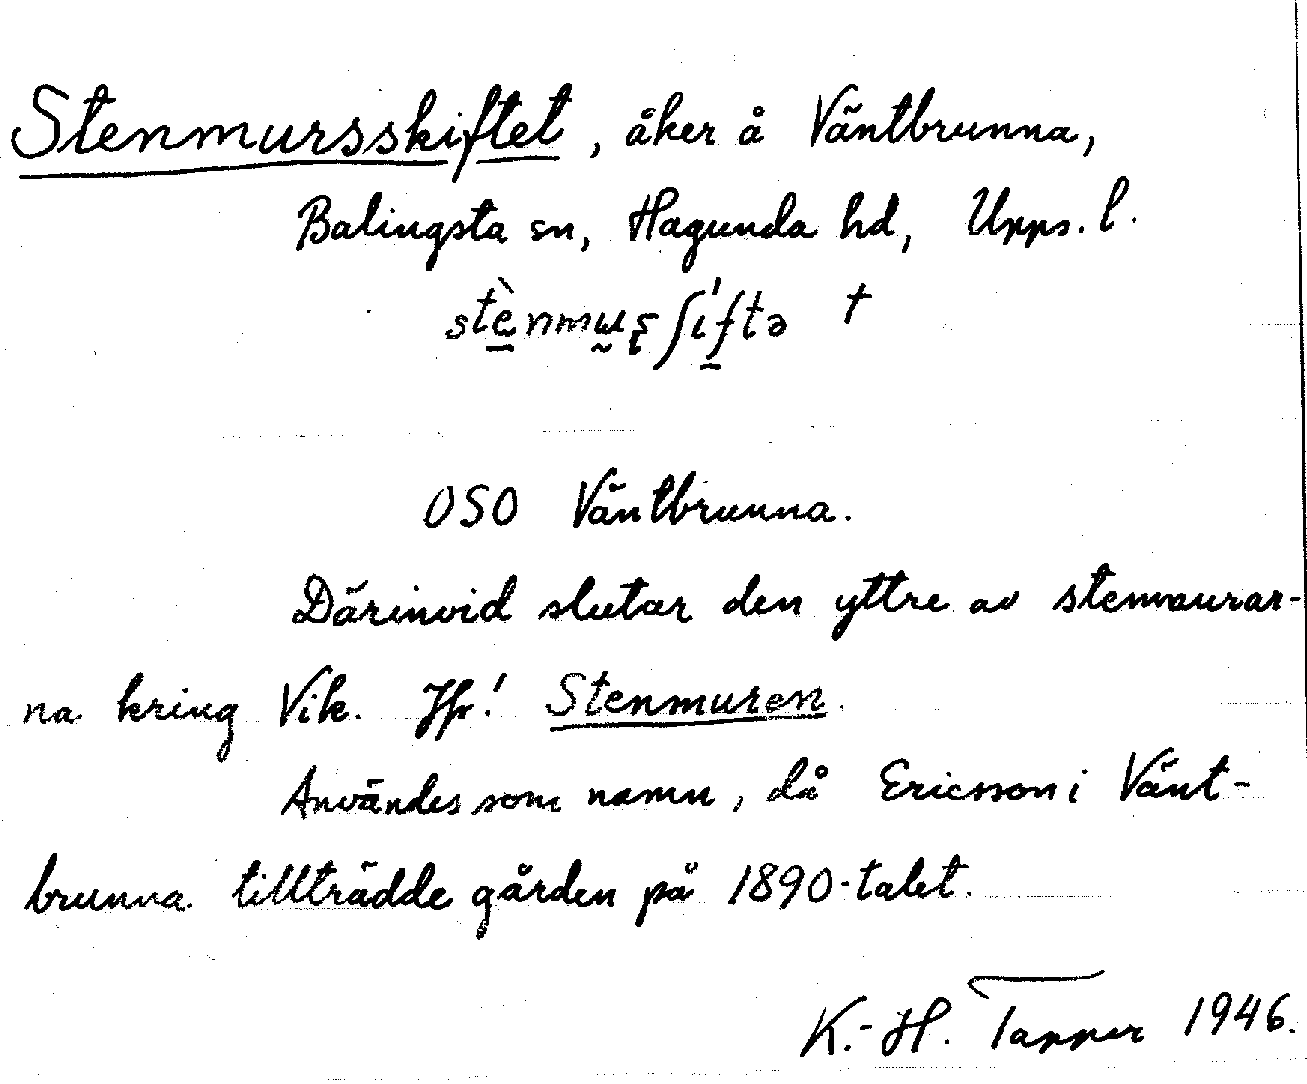 Stenmursskiftet, åker å Väntbrunna,
Balingsta sn, Hagunda hd, Upps. l.
OSO Väntbrunna.
Därinvid slutar den yttre av stenmurar-
na kring Vik. Jfr! Stenmuren.
Användes som namn, då Ericsson i Vänt-
brunna tillträdde gården på 1890-talet.
K.-H. Tapper 1946.